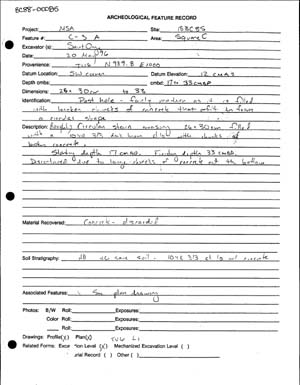 BC58-00085
ARCHEOLOGICAL FEATURE RECORD
Project: NSA Site: 18BC58
Feature #: C-3 A Area: Square C
Excavator(s):
Date: 20 May 96
Provenience: N989.8 E1000
Datum Location: SW corner Datum Elevation: 12 cmAS
Depth cmbs: cmbd: 17 to 33 cmBD
Dimensions: 26 x 30 cm to 33
Identification: Post hole - fairly modern as it is filled
with broken chunks of concrete that fit to form
a circular shape
Description: Roughly Circular stain measuring 26 x 30 cm filled
with a 10YR 3/3 dark brown with chunks of
broken concrete.
Starting depth 17 cmBD. Ending depth 33 cmBD.
Discontinued due to large chunks of concrete at the bottom
Material Recovered: Concrete - discarded
Soil Stratigraphy: soil - 10YR 3/3 w/ concrete
Associated Features: See plan drawing
Photos: B/W Roll: Exposures:
Color Roll: Exposures:
Roll: Exposures:
Drawings: Profile(s) Plan(s)
Related Forms: Excavation Level (x) Mechanized Excavation Level ( )
Burial Record ( ) Other ( )